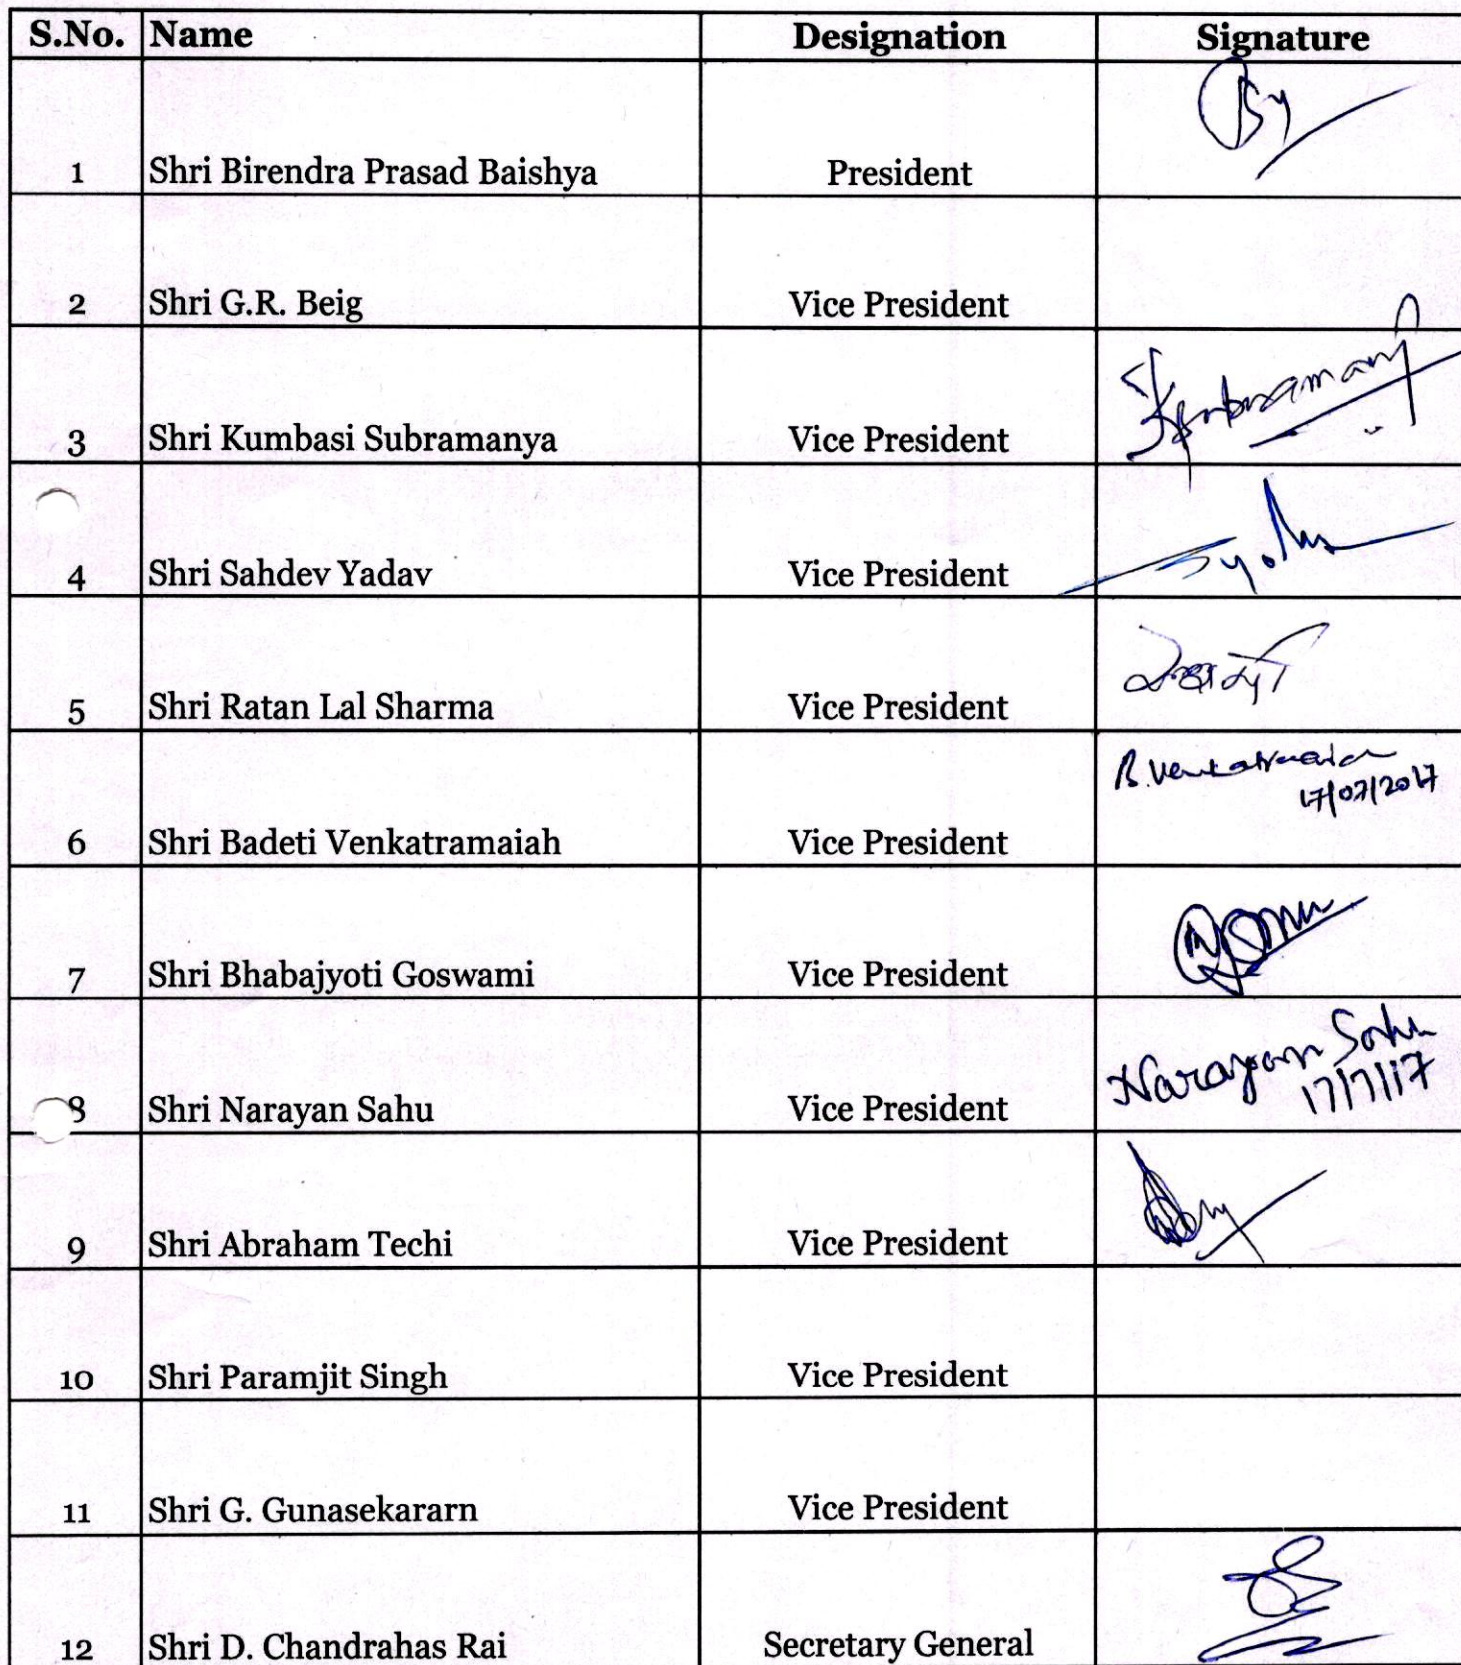 S.No. Name Designation Signature
1 Shri Birendra Prasad Baishya President
2 Shri G.R. Beig Vice President
3 Shri Kumbasi Subramanya Vice President
4 Shri Sahdev Yadav Vice President
5 Shri Ratan Lal Sharma Vice President
B. Venkatramaiah
17/07/2017
6 Shri Badeti Venkatramaiah Vice President
7 Shri Bhabajyoti Goswami Vice President
Narayan Sahu
17/7/17
8 Shri Narayan Sahu Vice President
9 Shri Abraham Techi Vice President
10 Shri Paramjit Singh Vice President
11 Shri G. Gunasekararn Vice President
12 Shri D. Chandrahas Rai Secretary General